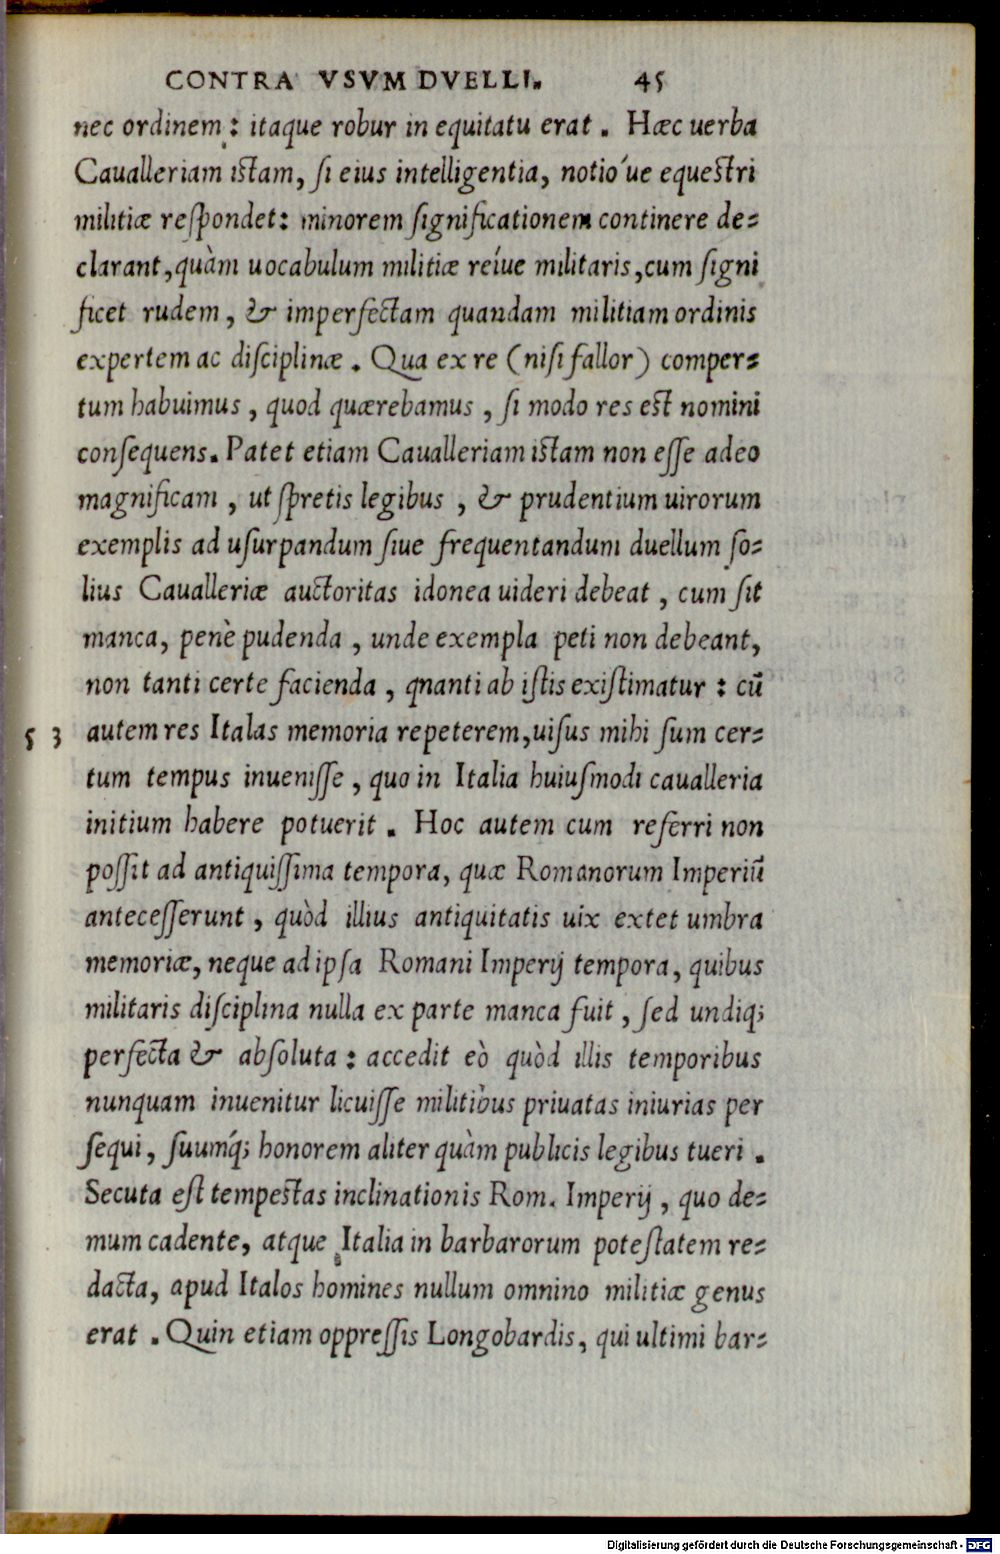 CONTRA VSVM DVELLI. 45
nec ordinem : itaque robur in equitatu erat . Hæc uerba
Caualleriam istam, si eius intelligentia, notio´ue equestri
militiæ respondet: minorem significationem continere de=
clarant, quàm uocabulum militiæ reíue militaris, cum signi
ficet rudem , & imperfectam quandam militiam ordinis
expertem ac disciplinæ . Qua ex re (nisi fallor) comper=
tum habuimus , quod quærebamus , si modo res est nomini
consequens. Patet etiam Caualleriam istam non esse adeo
magnificam , ut spretis legibus , & prudentium uirorum
exemplis ad usurpandum siue frequentandum duellum so=
lius Caualleriæ auctoritas idonea uideri debeat , cum sit
manca, penè pudenda , unde exempla peti non debeant,
non tanti certe facienda , qnanti ab istis existimatur : cũ
53 autem res Italas memoria repeterem, uisus mihi sum cer=
tum tempus inuenisse , quo in Italia huiusmodi caualleria
initium habere potuerit . Hoc autem cum referri non
possit ad antiquissima tempora, quæ Romanorum Imperiũ
antecesserunt , quòd illius antiquitatis uix extet umbra
memoriæ, neque ad ipsa Romani Imperij tempora, quibus
militaris disciplina nulla ex parte manca fuit , sed undiq;
perfecta & absoluta : accedit eò quòd illis temporibus
nunquam inuenitur licuisse militibus priuatas iniurias per
sequi, suumq́; honorem aliter quàm publicis legibus tueri .
Secuta est tempestas inclinationis Rom. Imperij , quo de=
mum cadente, atque Italia in barbarorum potestatem re=
dacta, apud Italos homines nullum omnino militiæ genus
erat . Quin etiam oppressis Longobardis, qui ultimi bar=
Digitalisierung gefördert durch die Deutsche Forschungsgemeinschaft - DFG